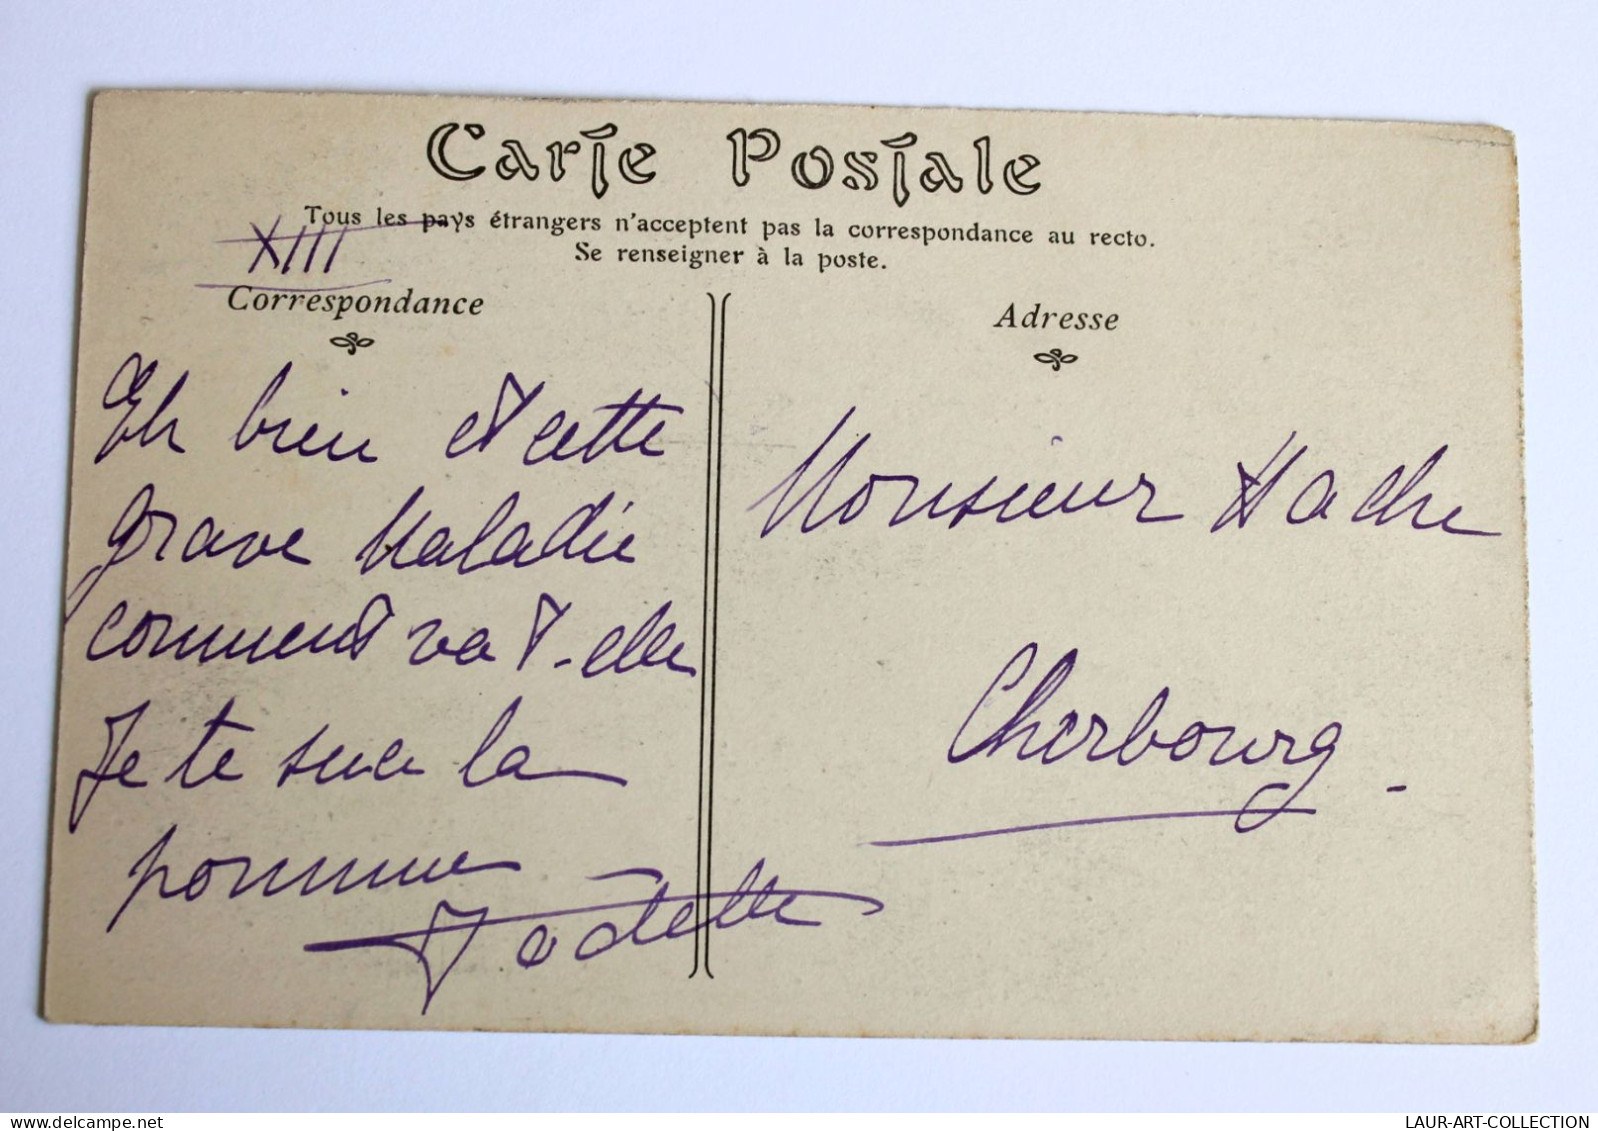 Carte Postale
Tous les pays étrangers n'acceptent pas la correspondance au recto.
Se renseigner à la poste.
XIII
Correspondance
Eh bien et cette
grave Maladie
comment va t-elle
Je te suce la
pomme
Adresse
Monsieur Hache
Cherbourg -
delcampe.net
LAUR-ART-COLLECTION